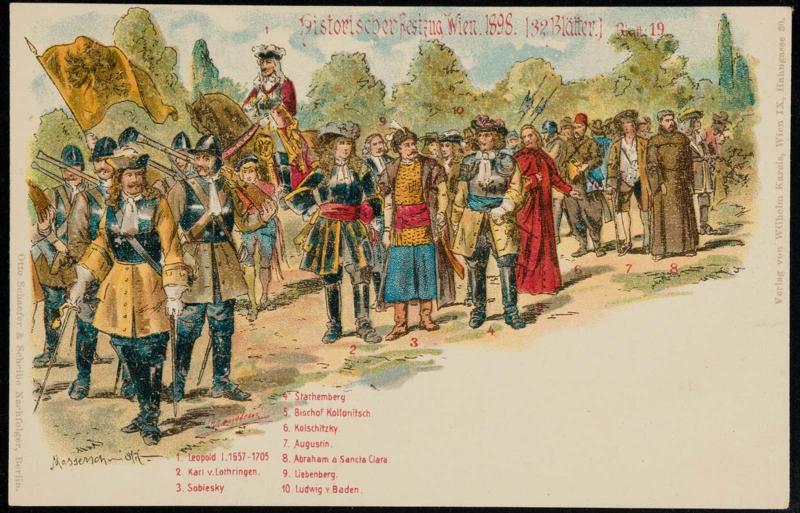 Historischer Festzug Wien. 1898. [32 Blätter.] Blatt. 19
1
9
10
2
3
4
6
7
8
4 Stathemberg
5. Bischof Kollonitsch
6. Kolschitzky.
7. Augustin.
8. Abraham a Sancta Clara.
9. Liebenberg.
10 Ludwig v. Baden.
1. Leopold I. 1657-1705
2. Karl v. Lothringen.
3. Sobiesky
Otto Schaefer & Scheibe Nachfolger, Berlin.
Verlag von Wilhelm Kareis, Wien IX, Hahngasse 30.